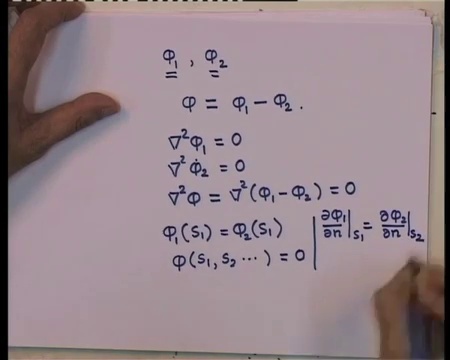 φ₁ , φ₂
φ = φ₁ − φ₂ .
∇²φ₁ = 0
∇²φ₂ = 0
∇²φ = ∇²(φ₁ − φ₂) = 0
φ₁(S₁) = φ₂(S₁) | ∂φ₁/∂n |S₁ = ∂φ₂/∂n |S₂
φ(S₁, S₂ ⋯ ) = 0